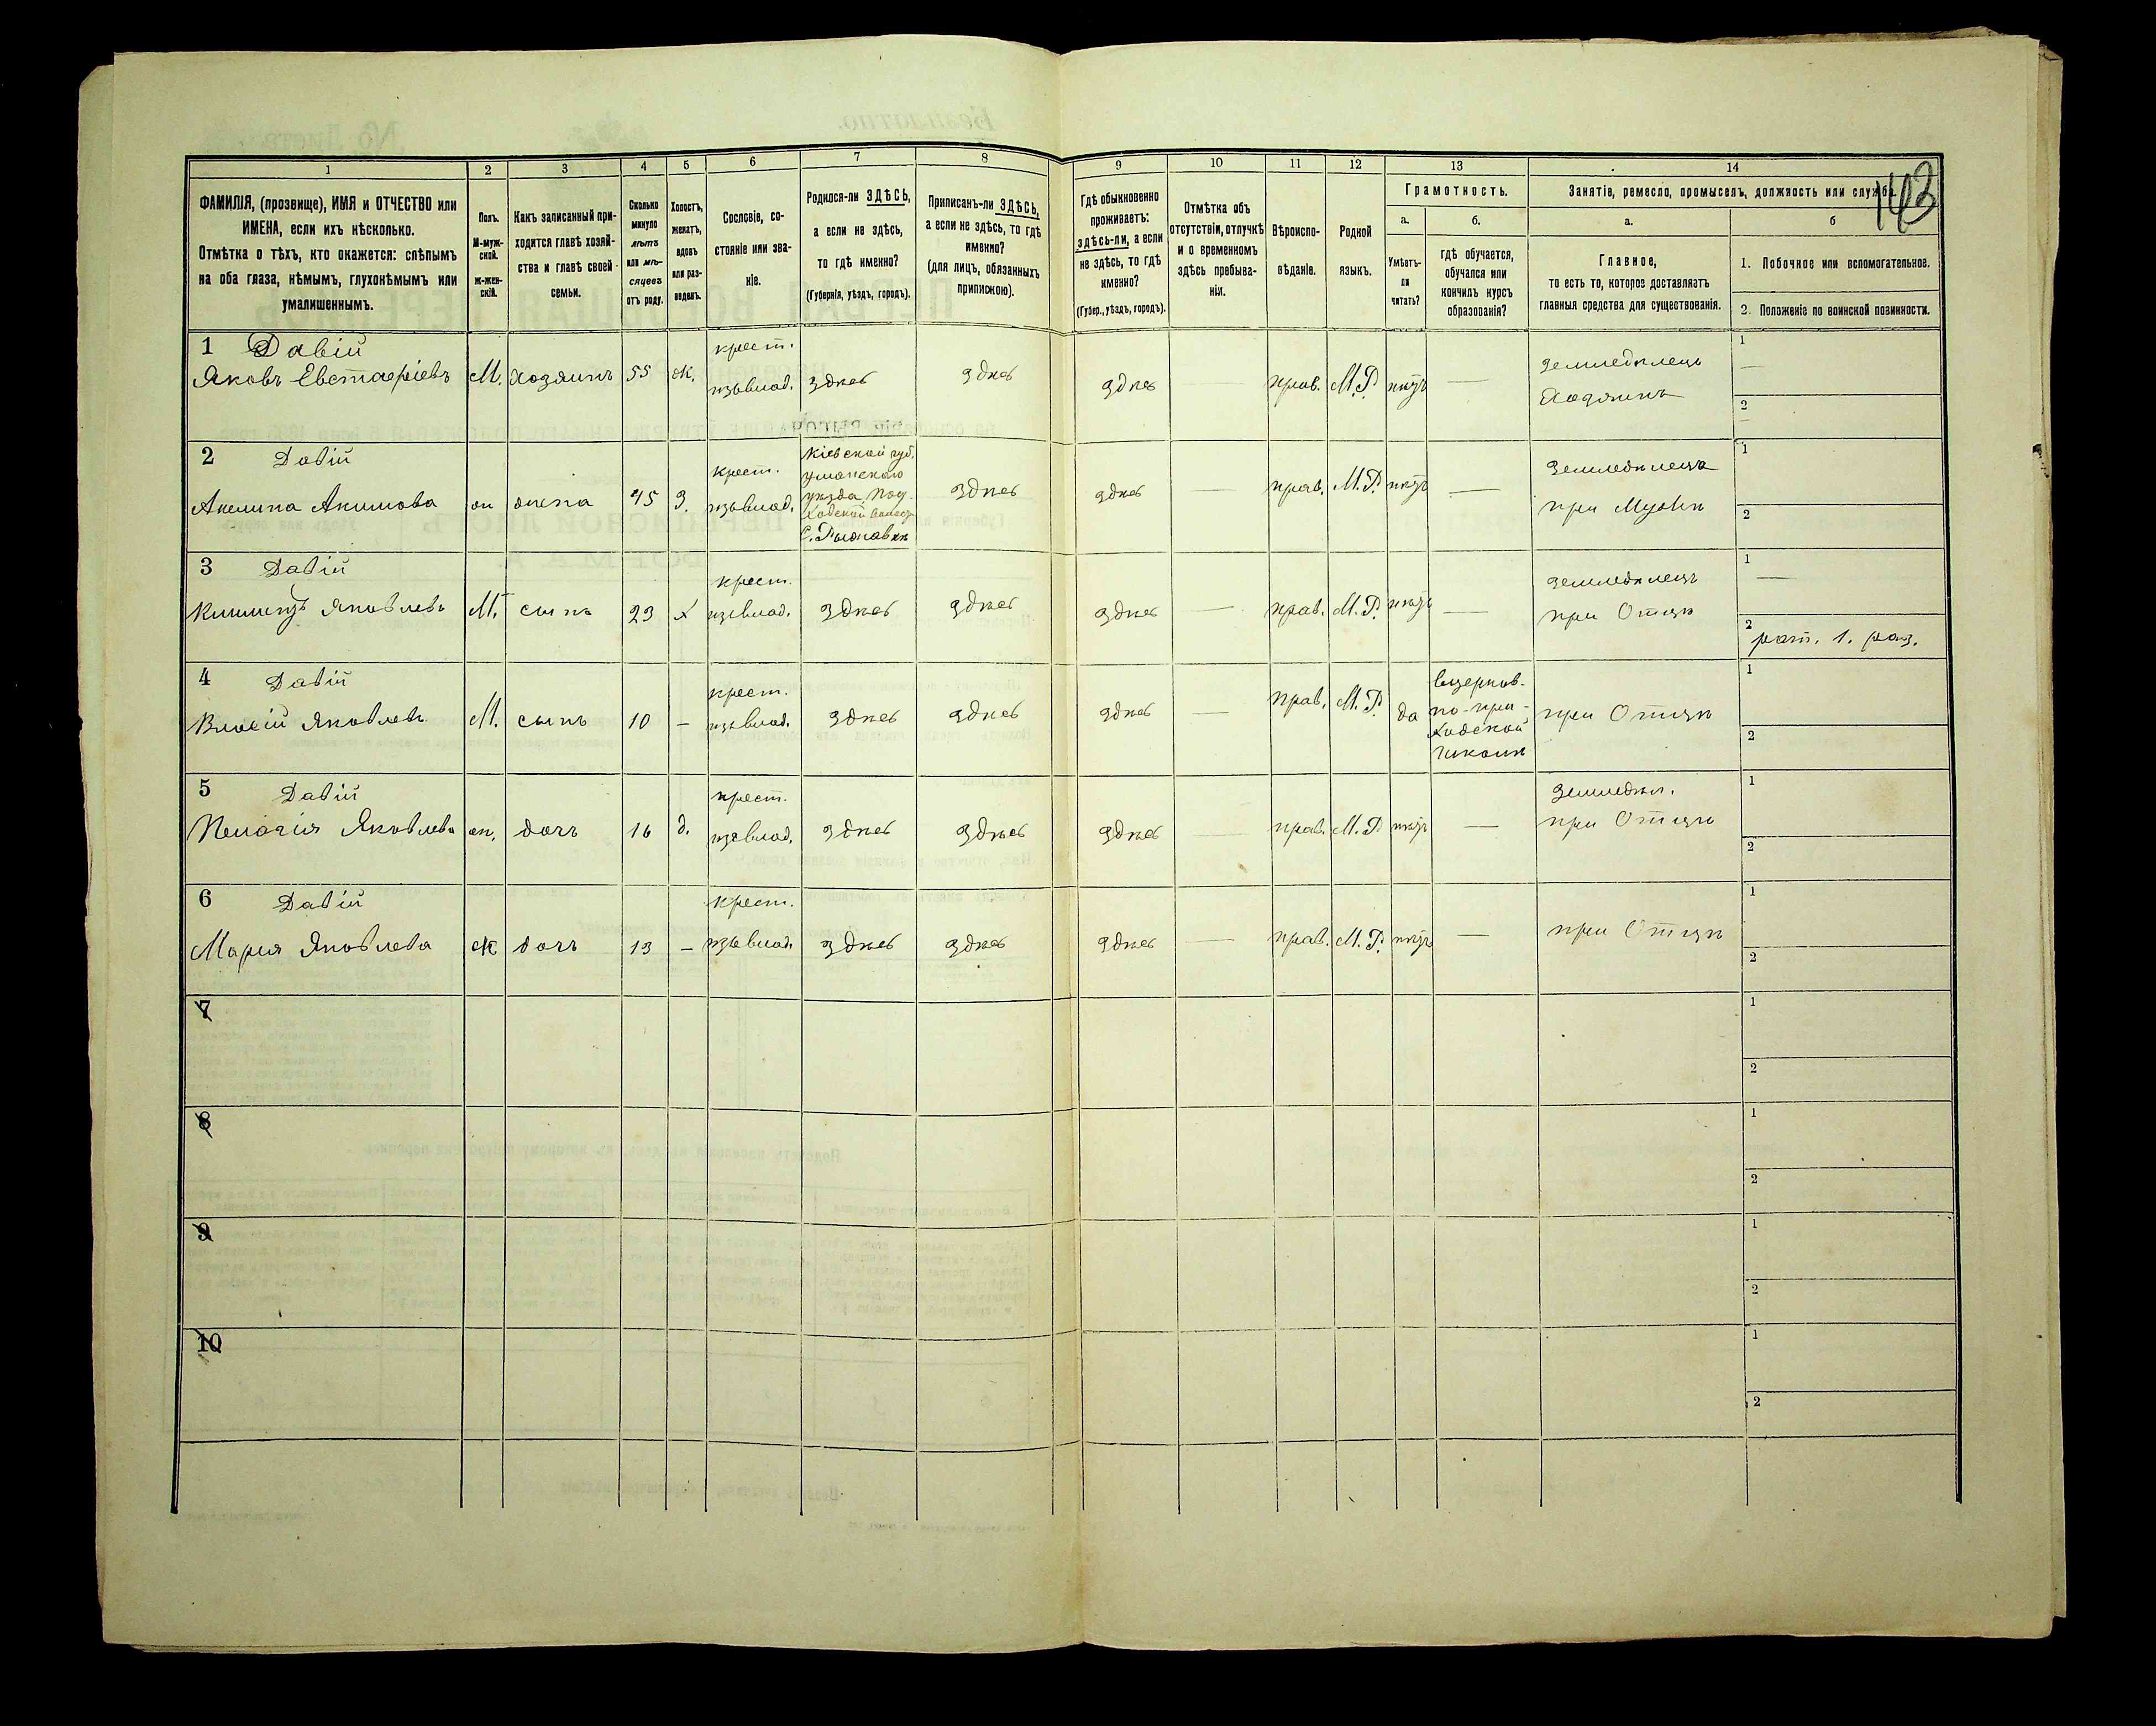 1 2 3 4 5 6 7 8 9 10 11 12 13 14
143
ФАМИЛІЯ, (прозвище), ИМЯ и ОТЧЕСТВО или
ИМЕНА, если ихъ нѣсколько.
Отмѣтка о тѣхъ, кто окажется: слѣпымъ
на оба глаза, нѣмымъ, глухонѣмымъ или
умалишеннымъ.
Полъ.
М-муж-
ской.
Ж-жен-
скій.
Какъ записанный при-
ходится главѣ хозяй-
ства и главѣ своей
семьи.
Сколько
минуло
лѣтъ
или мѣ-
сяцевъ
отъ роду.
Холостъ,
женатъ,
вдовъ
или раз-
веденъ.
Сословіе, со-
стояніе или зва-
ніе.
Родился-ли ЗДѢСЬ,
а если не здѣсь,
то гдѣ именно?
(Губернія, уѣздъ, городъ).
Приписанъ-ли ЗДѢСЬ,
а если не здѣсь, то гдѣ
именно?
(для лицъ, обязанныхъ
припискою).
Гдѣ обыкновенно
проживаетъ:
здѣсь-ли, а если
не здѣсь, то гдѣ
именно?
(Губер., уѣздъ, городъ).
Отмѣтка объ
отсутствіи, отлучкѣ
и о временномъ
здѣсь пребыва-
ніи.
Вѣроиспо-
вѣданіе.
Родной
языкъ.
Грамотность.
а.
Умѣетъ-
ли
читать?
б.
гдѣ обучается,
обучался или
кончилъ курсъ
образованія?
Занятіе, ремесло, промыселъ, должность или служба.
а.
Главное,
то есть то, которое доставляетъ
главныя средства для существованія.
б
1. Побочное или вспомогательное.
2. Положеніе по воинской повинности.
1 Давій
Яковъ Евстафіевъ М. хозяинъ 55 ж.
крест.
изъ влад.
здѣсь здѣсь здѣсь прав. М.Р. нѣтъ —
земледѣлецъ
Хозяинъ
1 —
2
2 Давій
Акелина Акимова ж жена 45 З.
крест.
изъ влад.
Кіевской губ.
уманскаго
уѣзда,
здѣсь здѣсь — прав. М.Р. нѣтъ —
земледѣлецъ
при Мужѣ
1
2
3 Давій
Яковлевъ М. сынъ 23 х
крест.
изъ влад.
здѣсь здѣсь здѣсь — прав. М.Р. нѣтъ —
земледѣлецъ
при Отцѣ
1 —
2
рат. 1. раз.
4 Давій
Власій Яковлевъ М. сынъ 10 —
крест.
изъ влад.
здѣсь здѣсь здѣсь — прав. М.Р. да
въ церков-
но-при-
ходской
школѣ
при Отцѣ
1
2
5 Давій
Пелагія Яковлева ж. дочь 16 д.
крест.
изъ влад.
здѣсь здѣсь здѣсь прав. М.Р нѣтъ —
земледѣл.
при Отцѣ
1
2
6 Давій
Мария Яковлева ж дочь 13 —
крест.
изъ влад.
здѣсь здѣсь здѣсь — прав. М.Р. нѣтъ —
при Отцѣ
1
2
7
1
2
8
1
2
9
1
2
10
1
2